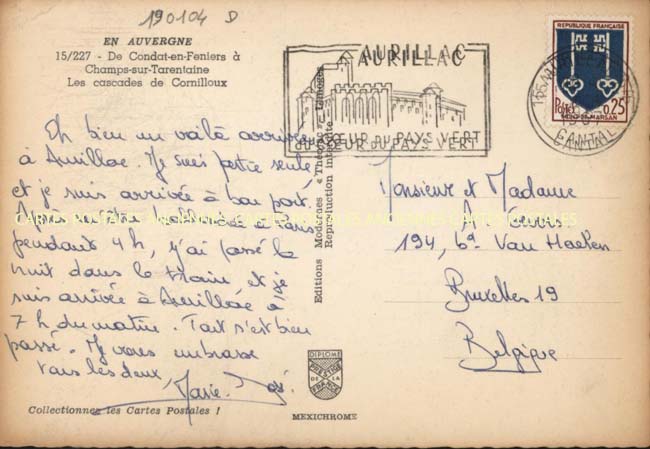 190104 D
EN AUVERGNE
15/227 - De Condat-en-Feniers à
Champs-sur-Tarentaine
Les cascades de Cornilloux
Eh bien me voilà arrivée
à Aurillac. Je suis partie seule
et je suis arrivée à bon port.
Après être à Paris
pendant 4h, j'ai passé la
nuit dans le train, et je
suis arrivée à Aurillac à
7 h du matin. Tout s'est bien
passé. Je vous embrasse
tous les deux,
Marie-José
Collectionnez les Cartes Postales !
Editions Modernes « Théojac » - Limoges
Reproduction interdite
DIPLOME
PRESTIGE
DE LA
FRANCE
MEXICHROME
AURILLAC
AURILLAC
CŒUR DU PAYS VERT
CŒUR DU PAYS VERT
15 AURILLAC
CANTAL
REPUBLIQUE FRANÇAISE
Postes
0,25
MONT-DE-MARSAN
Monsieur et Madame
194, bd Van Haelen
Bruxelles 19
Belgique
CARTES POSTALES ANCIENNES CARTES POSTALES ANCIENNES CARTES POSTALES